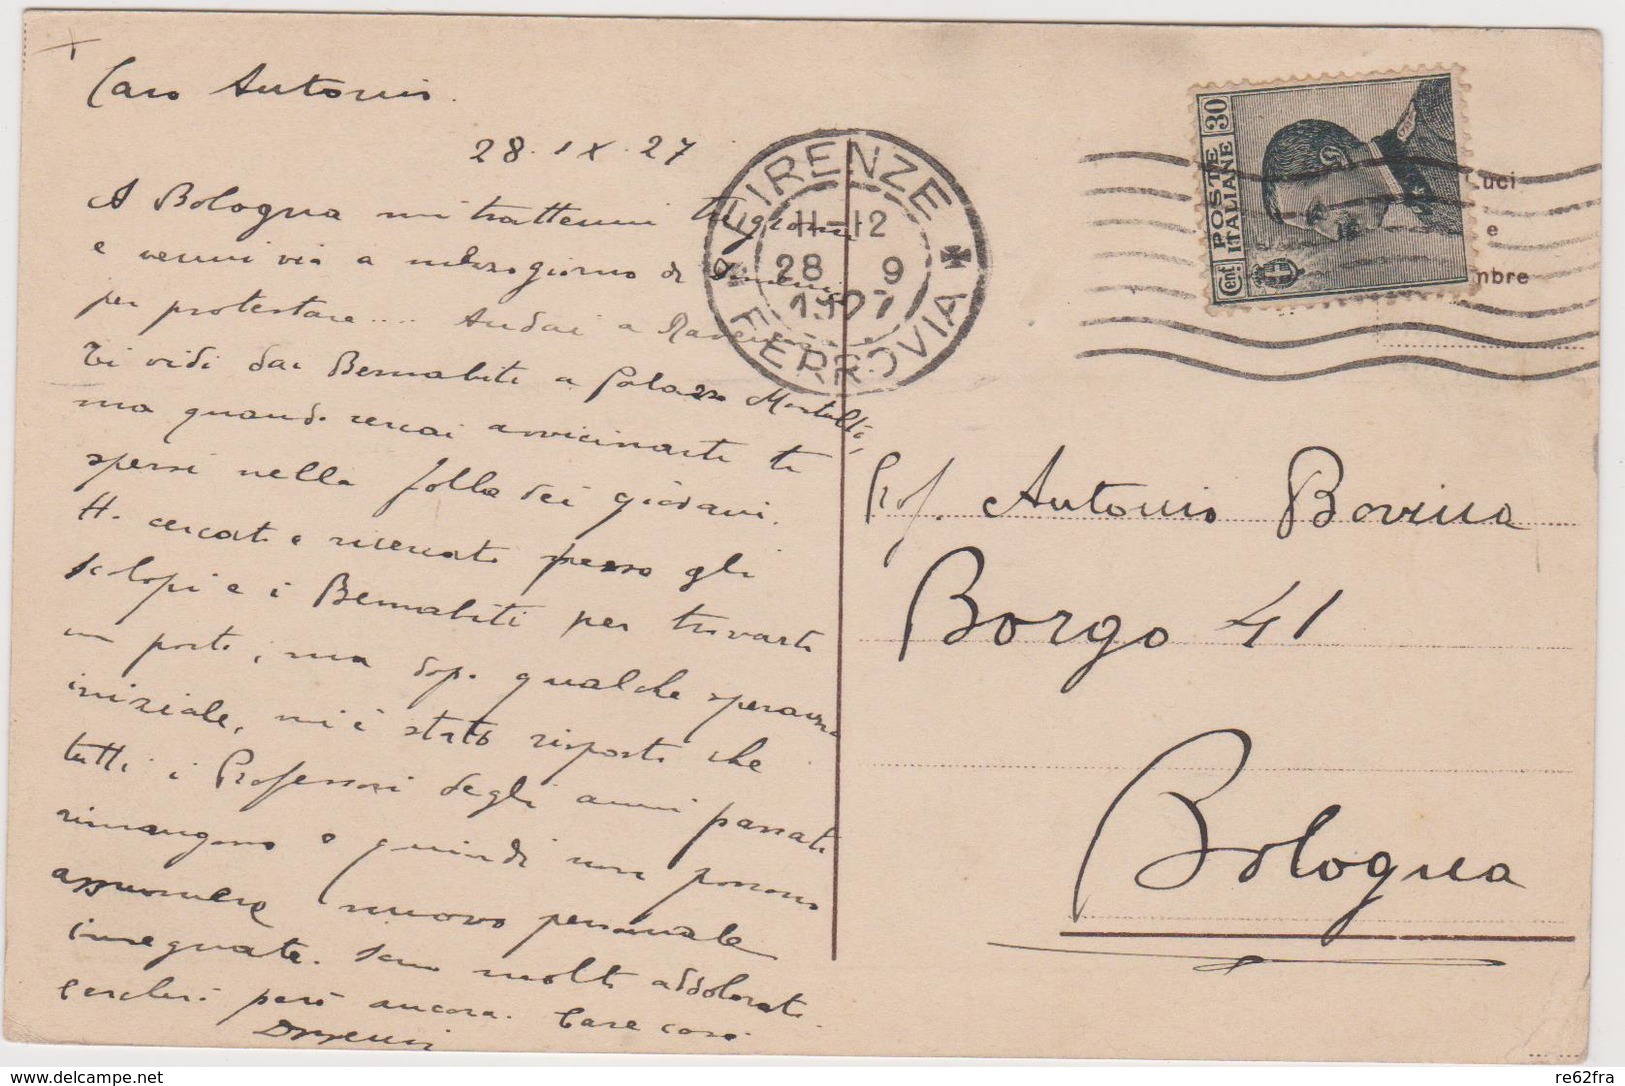 Caro Antonio.
28.IX.27
A Bologna mi trattenni tre giorni
e venni via a mezzogiorno di
per protestare .... Andai a
Ti vidi dai Bernabiti a Palazzo
ma quando cercai avvicinarti ti
spersi nella folla dei giovani.
H. cercato e ricercato presso gli
scolopi e i Bernabiti per trovarti
un posto, ma dopo qualche speranza
iniziale, mi è stato risposto che
tutti i Professori degli anni passati
rimangono e quindi non possono
assumere nuovo personale
insegnante. Sono molto addolorato.
Cercherò però ancora. Care cose
FIRENZE
11-12
28 9
1927
FERROVIA
Cent. 30
POSTE
ITALIANE
Luci
e
mbre
Prof. Antonio
Borgo 41
Bologna
delcampe.net
re62fra